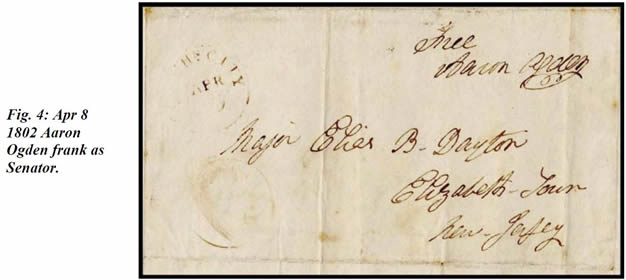 Fig. 4: Apr 8
1802 Aaron
Ogden frank as
Senator.
Free
Aaron Ogden
CITY
APR
Major Elias B- Dayton
Elizabeth-Town
New-Jersey